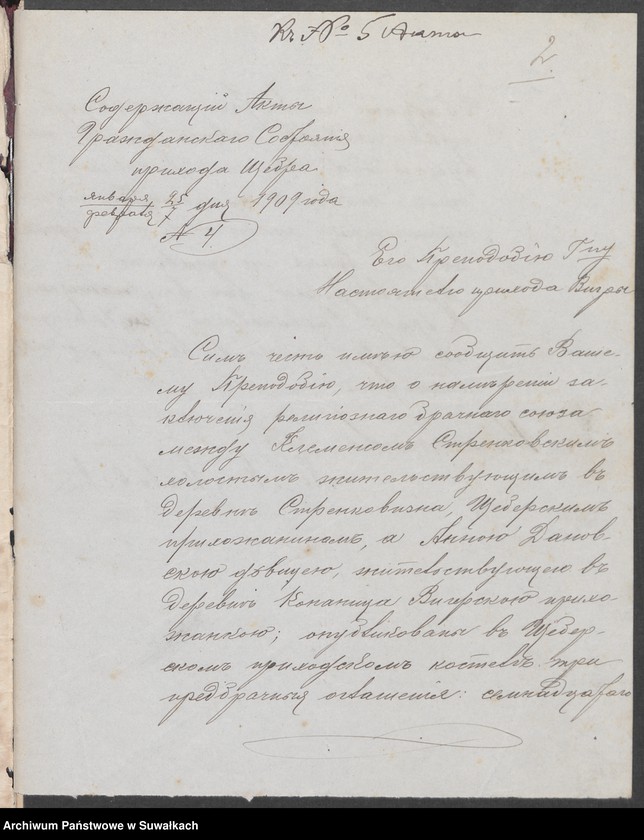 Къ № 5 Акта
2
Содержащій Акты
Гражданскаго Состоянія
прихода Щебра
января 25
февраля 7 дня 1909 года
№ 4.
Его Преподобію Гну
Настоятелю прихода Вигры
Симъ честь имѣю сообщить Ваше-
му Преподобію, что о намѣреніи за-
ключенія религіознаго брачнаго союза
между Клеменсомъ Стренковскимъ
холостымъ жительствующимъ въ
деревнѣ Стренковизна, Щеберскимъ
прихожаниномъ, а Анною Данов-
скою дѣвицею, жительствующею въ
деревнѣ Копаница Вигерскою прихо-
жанкою; опубликованы въ Щебер-
скомъ приходскомъ костелѣ три
предбрачныя оглашенія: семнадцатаго
Archiwum Państwowe w Suwałkach